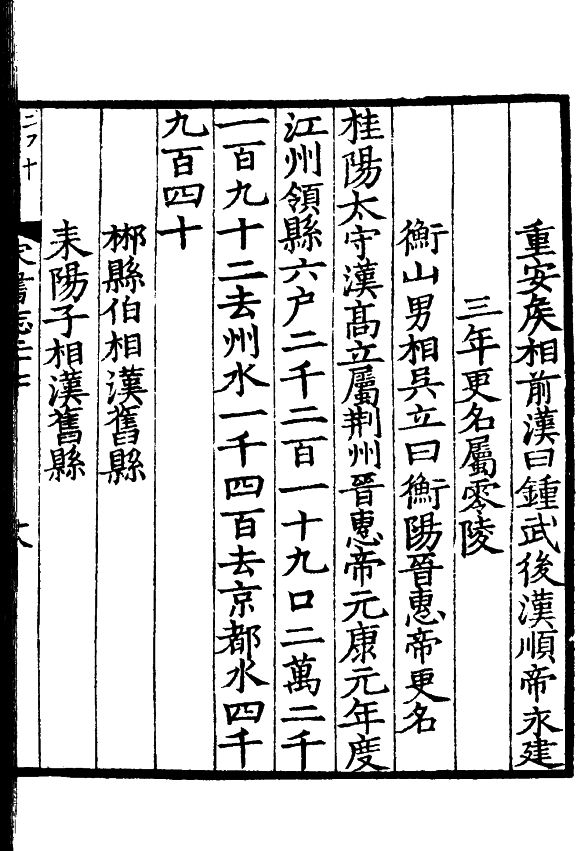 重安矦相前漢曰鍾武後漢順帝永建
三年更名屬零陵
衡山男相吳立曰衡陽晉惠帝更名
桂陽太守漢髙立屬荆州晉惠帝元康元年度
江州領縣六户二千二百一十九口二萬二千
一百九十二去州水一千四百去京都水四千
九百四十
郴縣伯相漢舊縣
耒陽子相漢舊縣